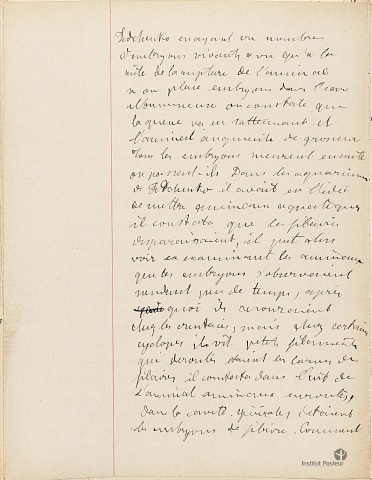 Fedchenko envoyant un nombre
d'embryons vivants a vu qu'à la
suite de la rupture de l'animal
si on place embryons dans l'eau
albumineuse on constate que
la queue va en s'atténuant et
l'animal augmente de grosseur
Tous les embryons meurent ensuite
où passent-ils Dans les aquariums
de Fedchenko il avait eu l'idée
de mettre animaux aquatiques
il constata que les filaires
disparaissaient, il put alors
voir en examinant les animaux
que les embryons s'observaient
pendant peu de temps, après
quoi ils
chez les crustacés, mais chez certains
cyclopes il vit petits filaments
qui déroulés étaient les larves de
filaires il constata dans l'
l'animal animaux enroulés,
Dans la cavité générale, étaient
les embryons de filaire. Comment
Institut Pasteur